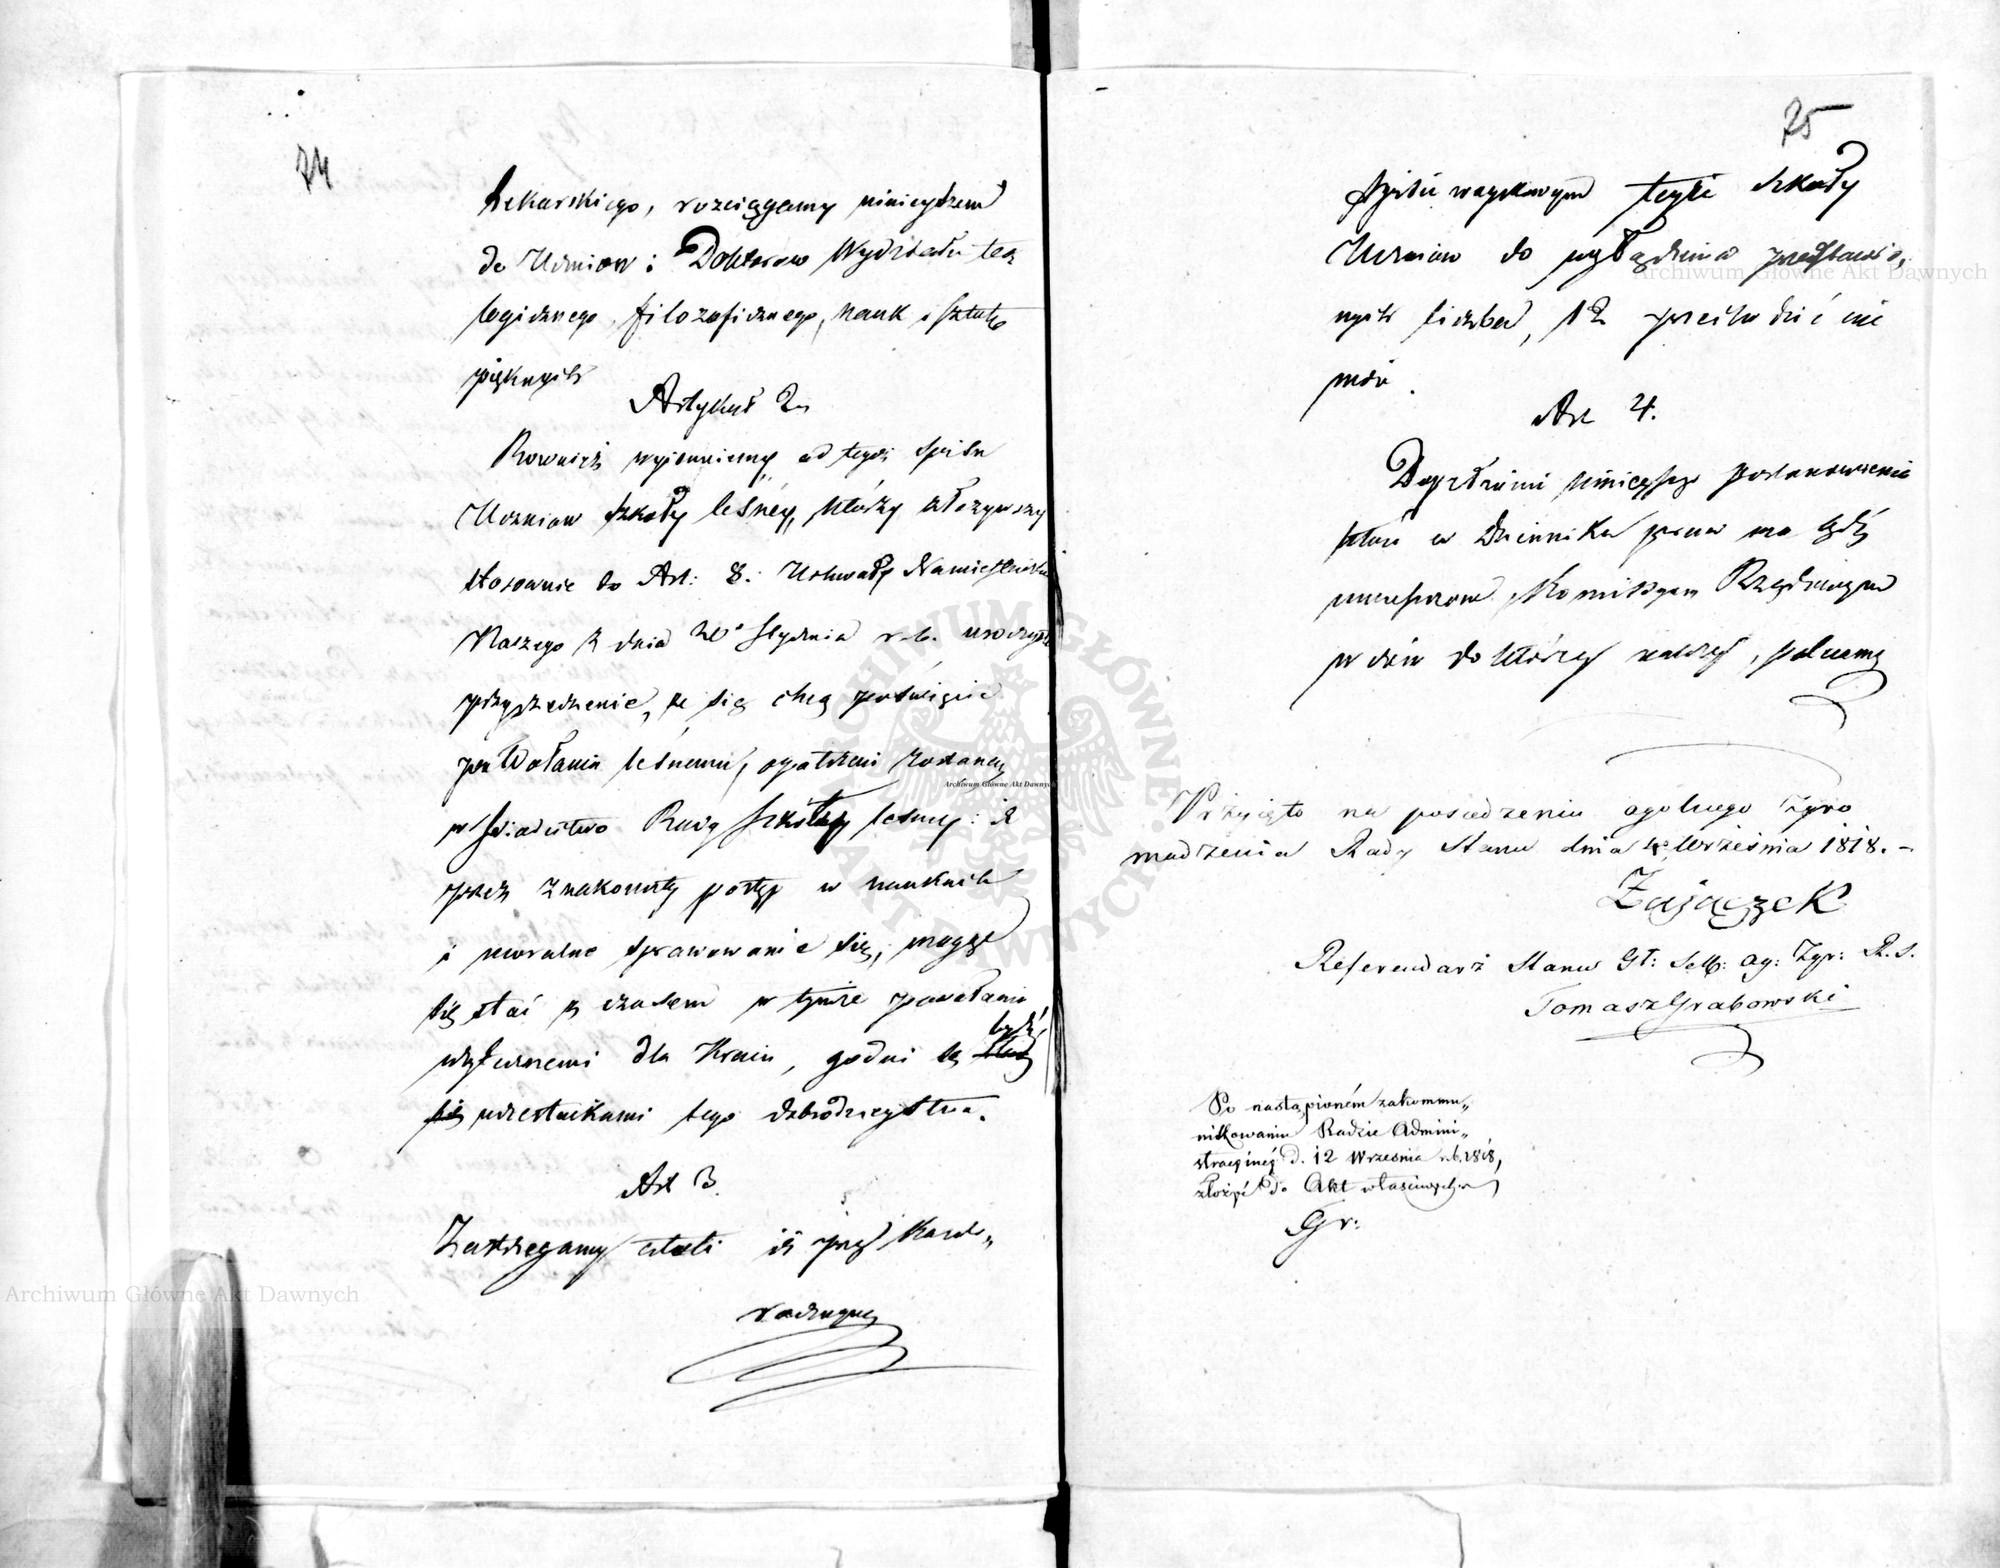 74
Lekarskiego, rozciągamy niniejszem
do Uczniow i Doktorow Wydziału teo
logicznego, filozoficznego, nauk i sztuk
pięknych
Artykuł 2.
Rownież wyjmuiemy od tegoż spisu
Uczniow szkoły leśnéy, którzy złożywszy
stosownie do Art: 8: Uchwały Namiestnika
Naszego z dnia stycznia r. b. uroczyste
przyrzeczenie, że się chcą poświęcić
powołaniu leśnemu, opatrzeni zostaną
w świadectwo Rady szkoły leśney: iż
przez znakomity postęp w naukach
i moralne sprawowanie się, mogąc
się stać z czasem w tymże powołaniu
użytecznemi dla Kraiu, godni są bydź
uczestnikami tego dobrodzieystwa.
Art 3.
Zastrzegamy iż przy każdo„
roczney
75
spisie woyskowym teyże szkoły
Uczniow do względnienia przedstawio„
nych liczba, 12 przechodzić nie
może.
Art 4.
Dopełnienie ninieyszego postanowienia
które w Dzienniku praw ma bydź
umieszczone Kommissyom Rządowym
w czem do którey należy, polecamy
Przyięto na posiedzeniu ogolnego Zgro
madzenia Rady Stanu dnia Września 1818. –
Zajączek
Referendarz Stanu Gł: Sekr: Og: Zgr: R. S.
Tomasz Grabowski
Po nastąpioném zakommu„
nikowaniu Radzie Admini„
stracyinéy d. 12 Września r. b. 1818,
złożyć do Akt właściwych
Gr:
Archiwum Główne Akt Dawnych
Archiwum Główne Akt Dawnych
Archiwum Główne Akt Dawnych
ARCHIWUM GŁÓWNE AKT DAWNYCH